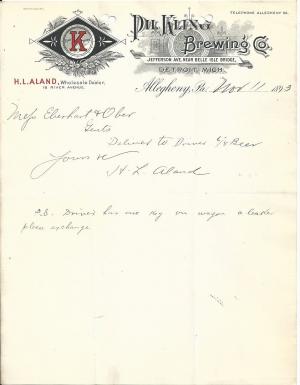 TELEPHONE ALLEGHENY 96.
K
PH. KLING
Brewing Co.
JEFFERSON AVE. NEAR BELLE ISLE BRIDGE,
DETROIT, MICH.
H. L. ALAND, Wholesale Dealer,
18 RIVER AVENUE.
Allegheny, Pa. Nov 11 1893
Mess Eberhart & Ober
Gents
Deliver to Driver 1/4 Beer
Yours &c
H. L. Aland
P.S. Driver has one Keg on wagon a leaker
please exchange